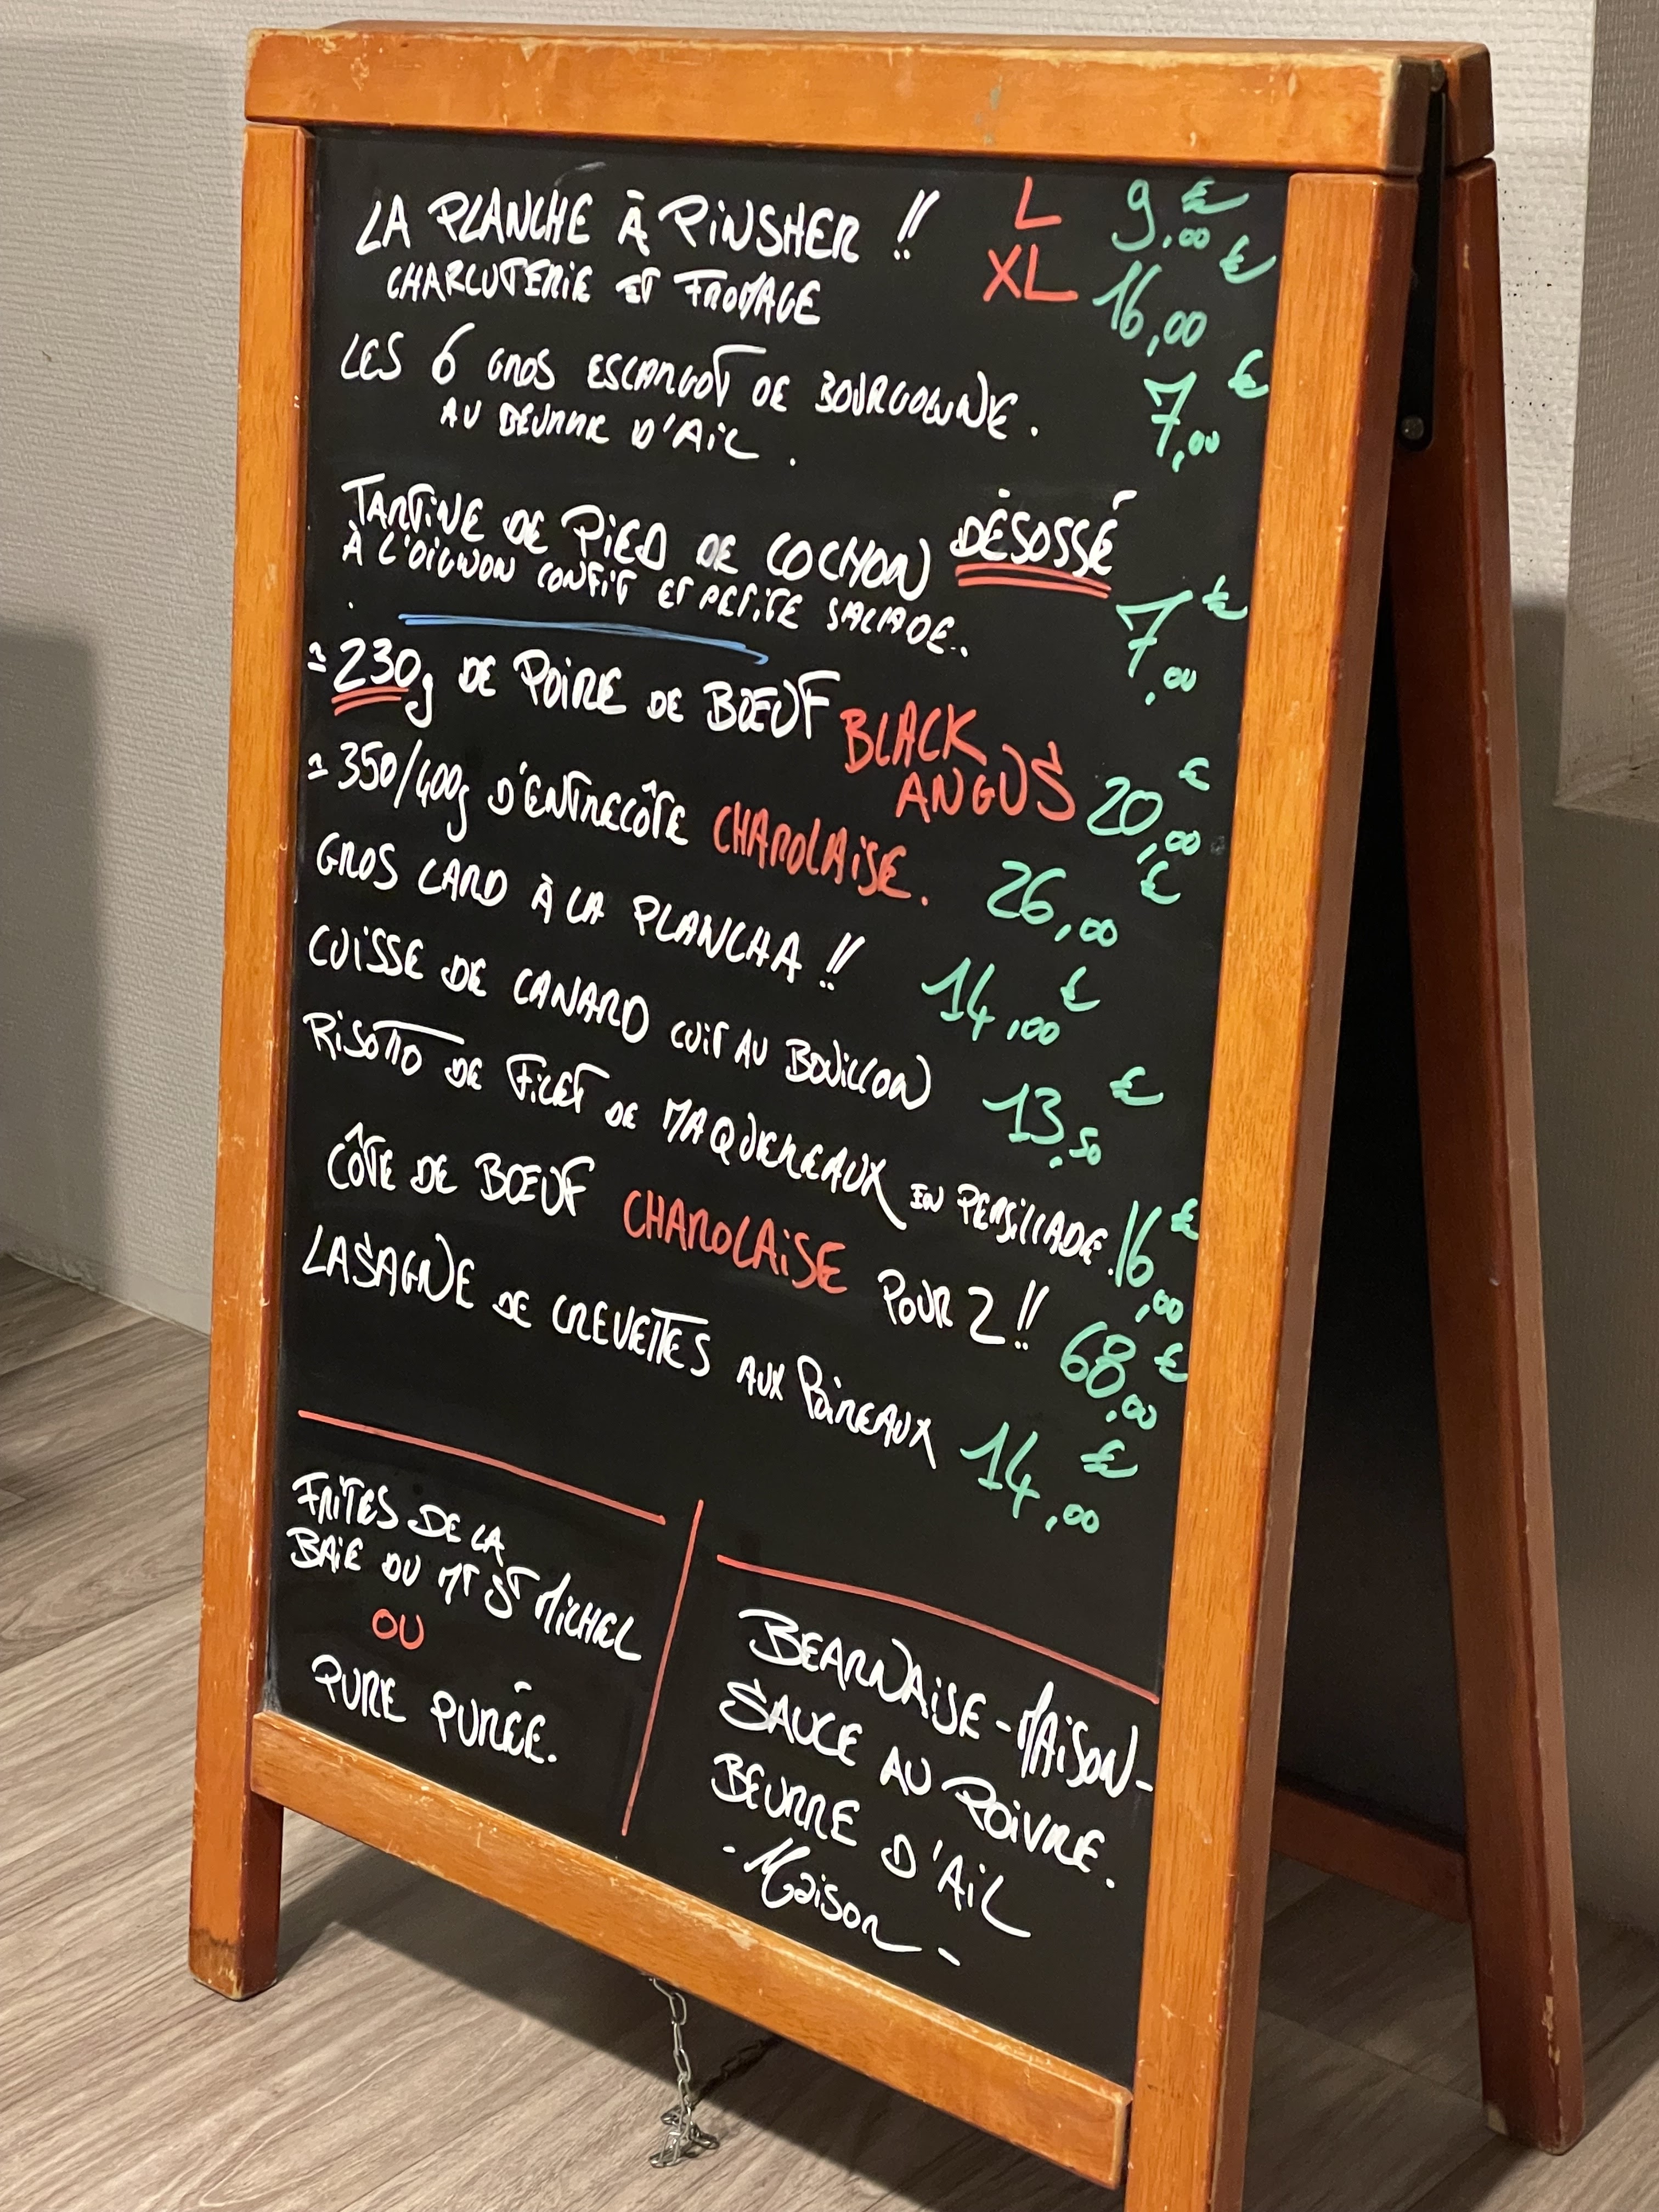 LA PLANCHE À PINSHER !! L 9,00 €
CHARCUTERIE ET FROMAGE XL 16,00 €
LES 6 GROS ESCARGOT DE BOURGOGNE. 7,00 €
AU BEURRE D'AIL.
TARTINE DE PIED DE COCHON DÉSOSSÉ
À L'OIGNON CONFIT ET PETITE SALADE.. 7,00 €
≃ 230g DE POIRE DE BŒUF BLACK
ANGUS 20,00 €
≃ 350/400g D'ENTRECÔTE CHAROLAISE. 26,00 €
GROS LARD À LA PLANCHA !! 14,00 €
CUISSE DE CANARD CUIT AU BOUILLON 13,50 €
RISOTTO DE FILET DE MAQUEREAUX EN PERSILLADE. 16,00 €
CÔTE DE BŒUF CHAROLAISE POUR 2 !! 68,00 €
LASAGNE DE CREVETTES AUX POIREAUX 14,00 €
FRITES DE LA
BAIE DU MT ST MICHEL
OU
PURE PURÉE.
BEARNAISE - MAISON -
SAUCE AU POIVRE.
BEURRE D'AIL
- Maison -